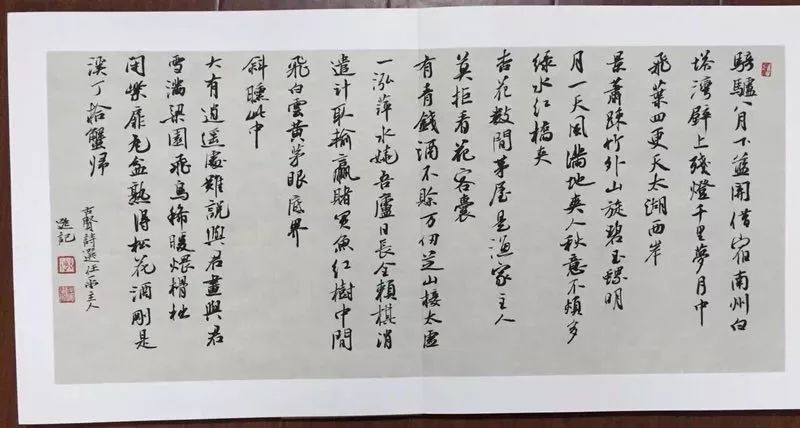 騎驢八月下藍關借宿南州白
塔灣壁上殘燈千里夢月中
飛葉四更天太湖西岸
景蕭疎竹外山旋碧玉螺明
月一天風滿地爽人秋意不須多
綠水紅橋夾
杏花數間茅屋是漁家主人
莫拒看花客囊
有青錢酒不賒万仞芝山接太虛
一泓萍水繞吾廬日長全賴棋消
遣計取輸贏賭買魚紅樹中間
飛白雲黃茅眼底界
斜曛此中
大有逍遙處難說與君畫與君
雪滿梁園飛鳥稀暖煨榾柮
閉柴扉瓦盆熟得松花酒剛是
溪丁拾蟹歸
古賢詩選 主人
記